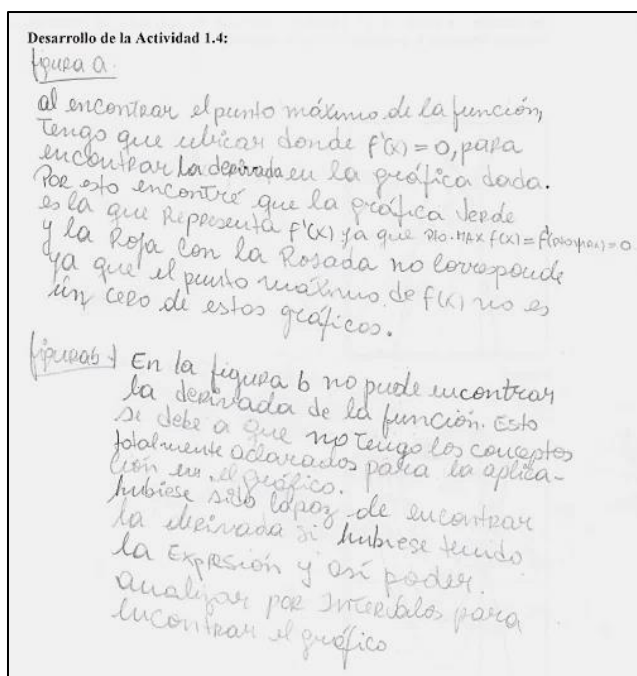 Desarrollo de la Actividad 1.4:
figura a.
al encontrar el punto máximo de la función,
Tengo que ubicar donde f'(x) = 0, para
encontrar la derivada en la gráfica dada.
Por esto encontré que la gráfica Verde
es la que Representa f'(x) ya que pto. MAX f(x) = f'(pto max) = 0
y la Roja con la Rosada no corresponde
ya que el punto máximo de f(x) no es
ún cero de estos gráficos.
figura b) En la figura b no pude encontrar
la derivada de la función. Esto
se debe a que no tengo los conceptos
totalmente aclarados para la aplica-
ción en el gráfico.
hubiese sido capaz de encontrar
la derivada si hubiese tenido
la Expresión y así poder.
analizar por Intervalos para
encontrar el gráfico